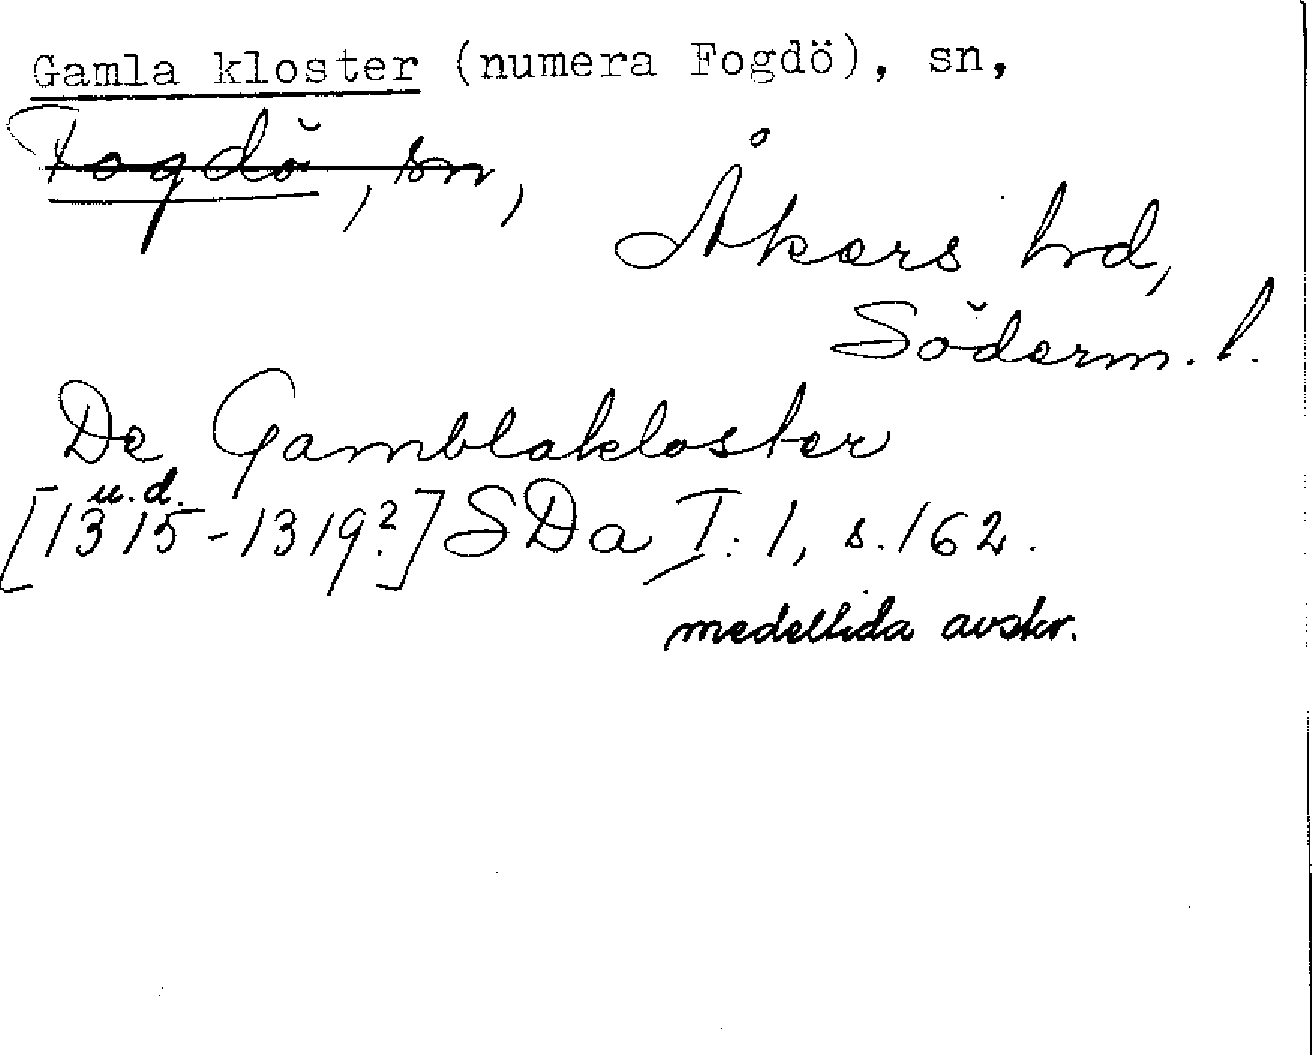 Gamla kloster (numera Fogdö), sn,
Fogdö, sn,
Åkers hd,
Söderm. l.
De Gamblakloster
u.d.
[1315-1319?] SDa I:1, s.162.
medeltida avskr.